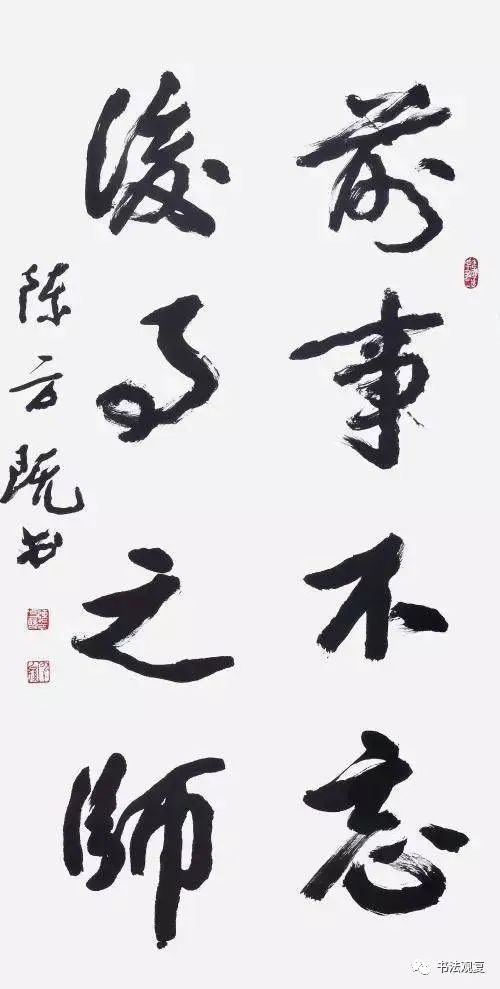 前事不忘
後事之師
陈方既书
书法观复